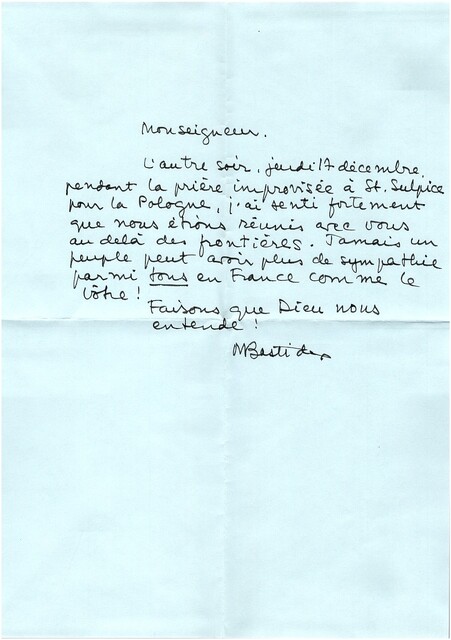 Monseigneur.
L'autre soir, jeudi 17 décembre,
pendant la prière improvisée à St. Sulpice
pour la Pologne, j'ai senti fortement
que nous étions réunis avec vous
au delà des frontières. Jamais un
peuple peut avoir plus de sympathie
parmi tous en France comme le
vôtre!
Faisons que Dieu nous
entende!
MBastide